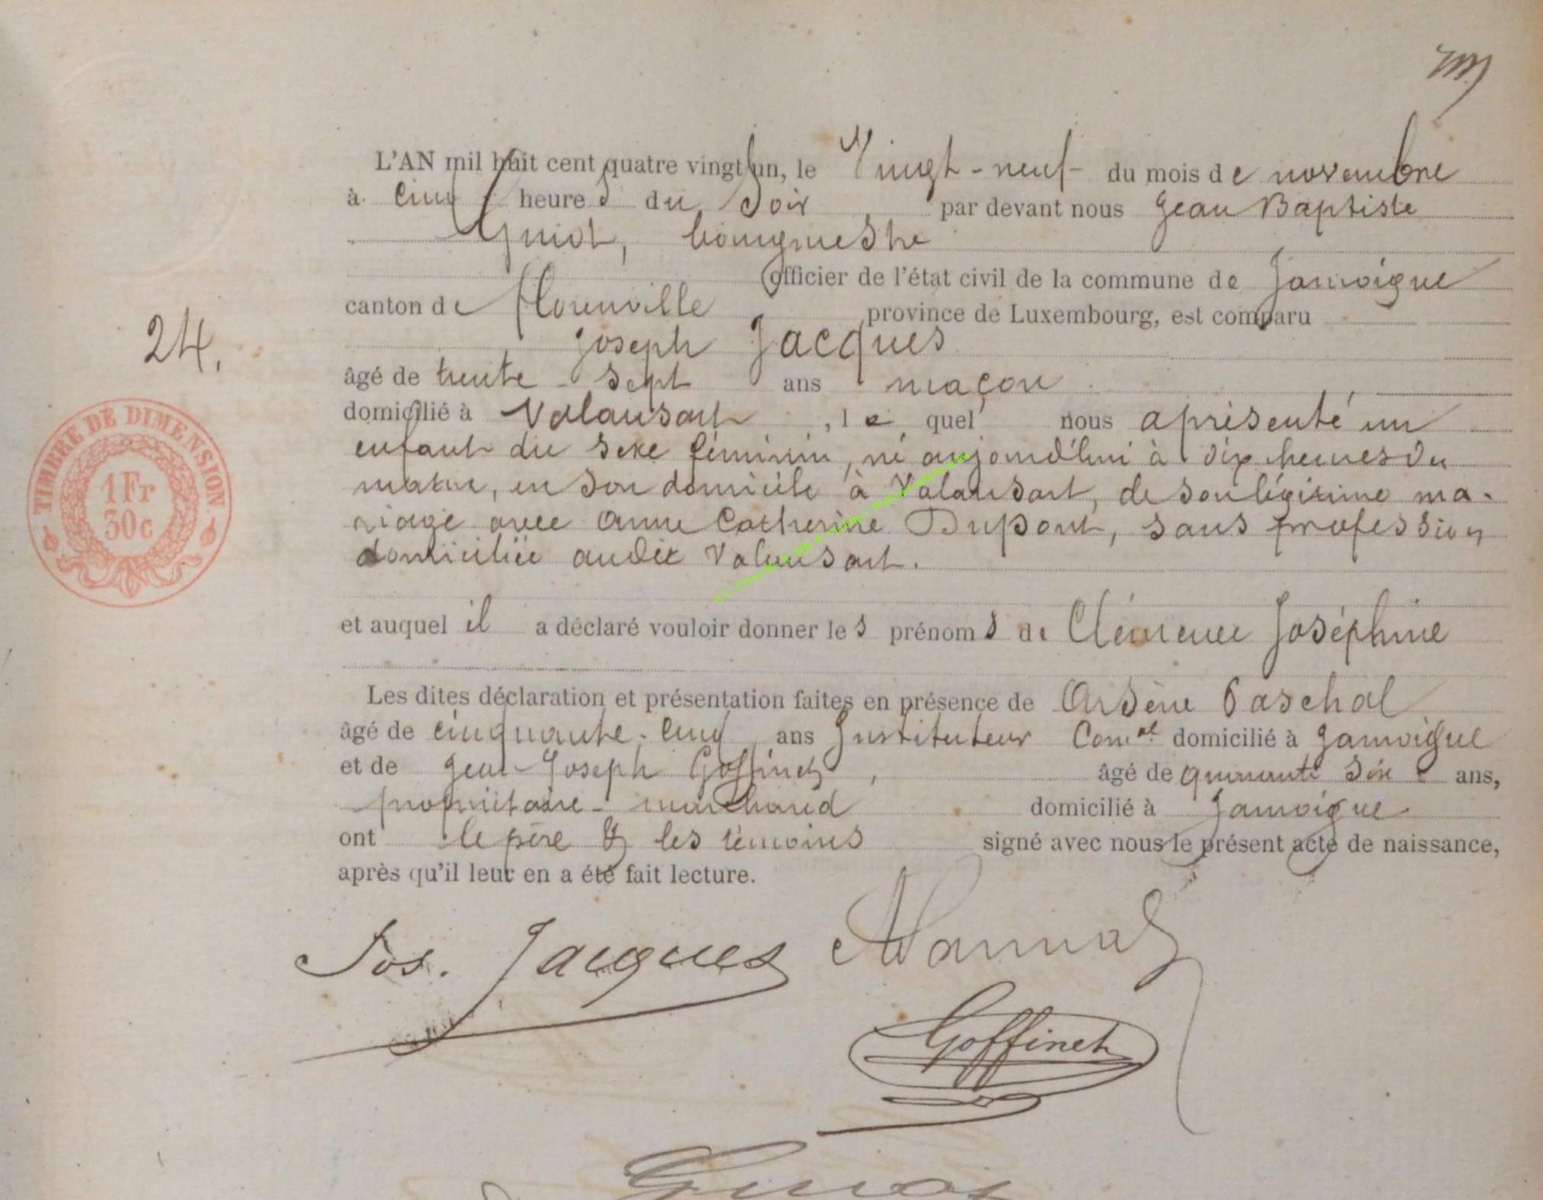 L'AN mil huit cent quatre vingt un, le Vingt-neuf du mois de novembre
à cinq heures du Soir par devant nous Jean Baptiste
Guiot, bourgmestre
officier de l'état civil de la commune de Jamoigne
canton de Florenville province de Luxembourg, est comparu
Joseph Jacques
24.
âgé de trente-sept ans maçon
domicilié à Valansart, lequel nous a présenté un
enfant du sexe féminin, né aujourd'hui à dix heures du
matin, en son domicile à Valansart, de son légitime ma-
riage avec Anne Catherine Dupont, sans profession
domiciliée audit Valansart.
TIMBRE DE DIMENSION
1 Fr
30c
et auquel il a déclaré vouloir donner les prénoms de Clémence Joséphine
Les dites déclaration et présentation faites en présence de Arsène Paschal
âgé de cinquante-cinq ans Instituteur Comal domicilié à Jamoigne
et de Jean-Joseph Goffinet, âgé de quarante six ans,
propriétaire-marchand domicilié à Jamoigne
ont le père & les témoins signé avec nous le présent acte de naissance,
après qu'il leur en a été fait lecture.
Jos. Jacques
Goffinet
Guiot